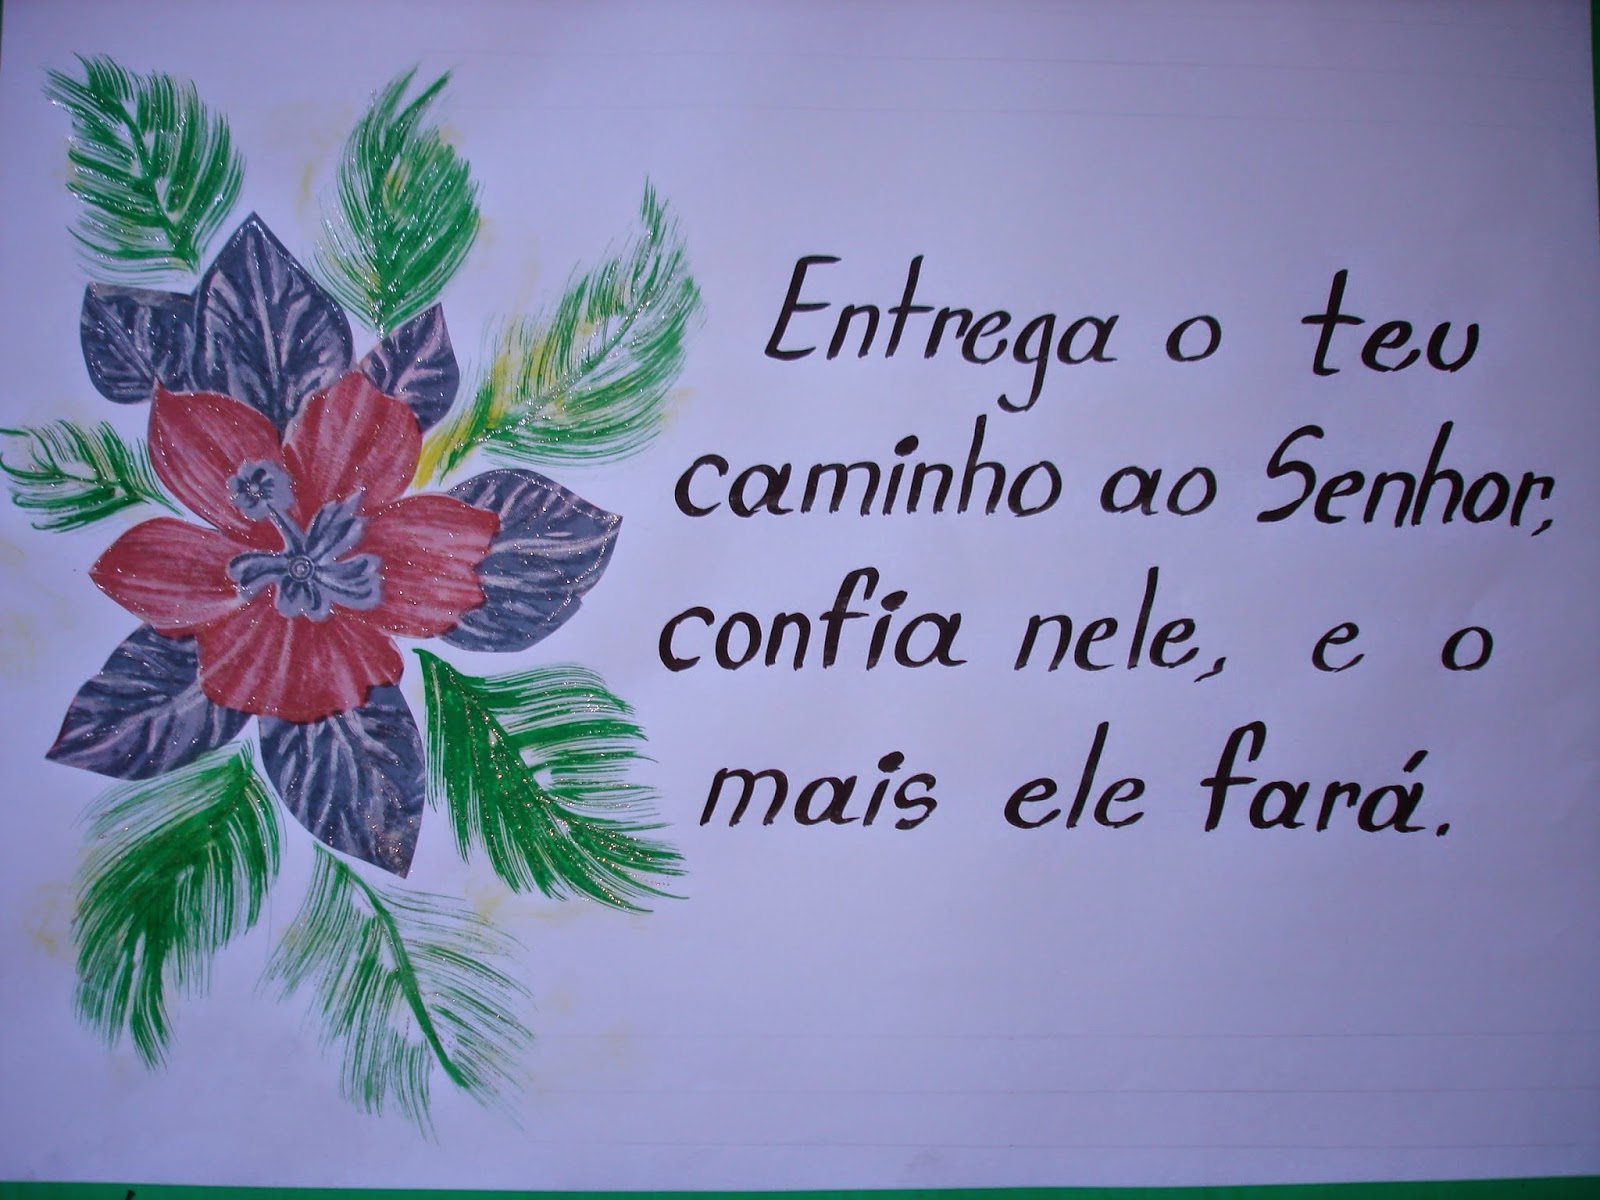 Entrega o teu
caminho ao Senhor,
confia nele, e o
mais ele fará.